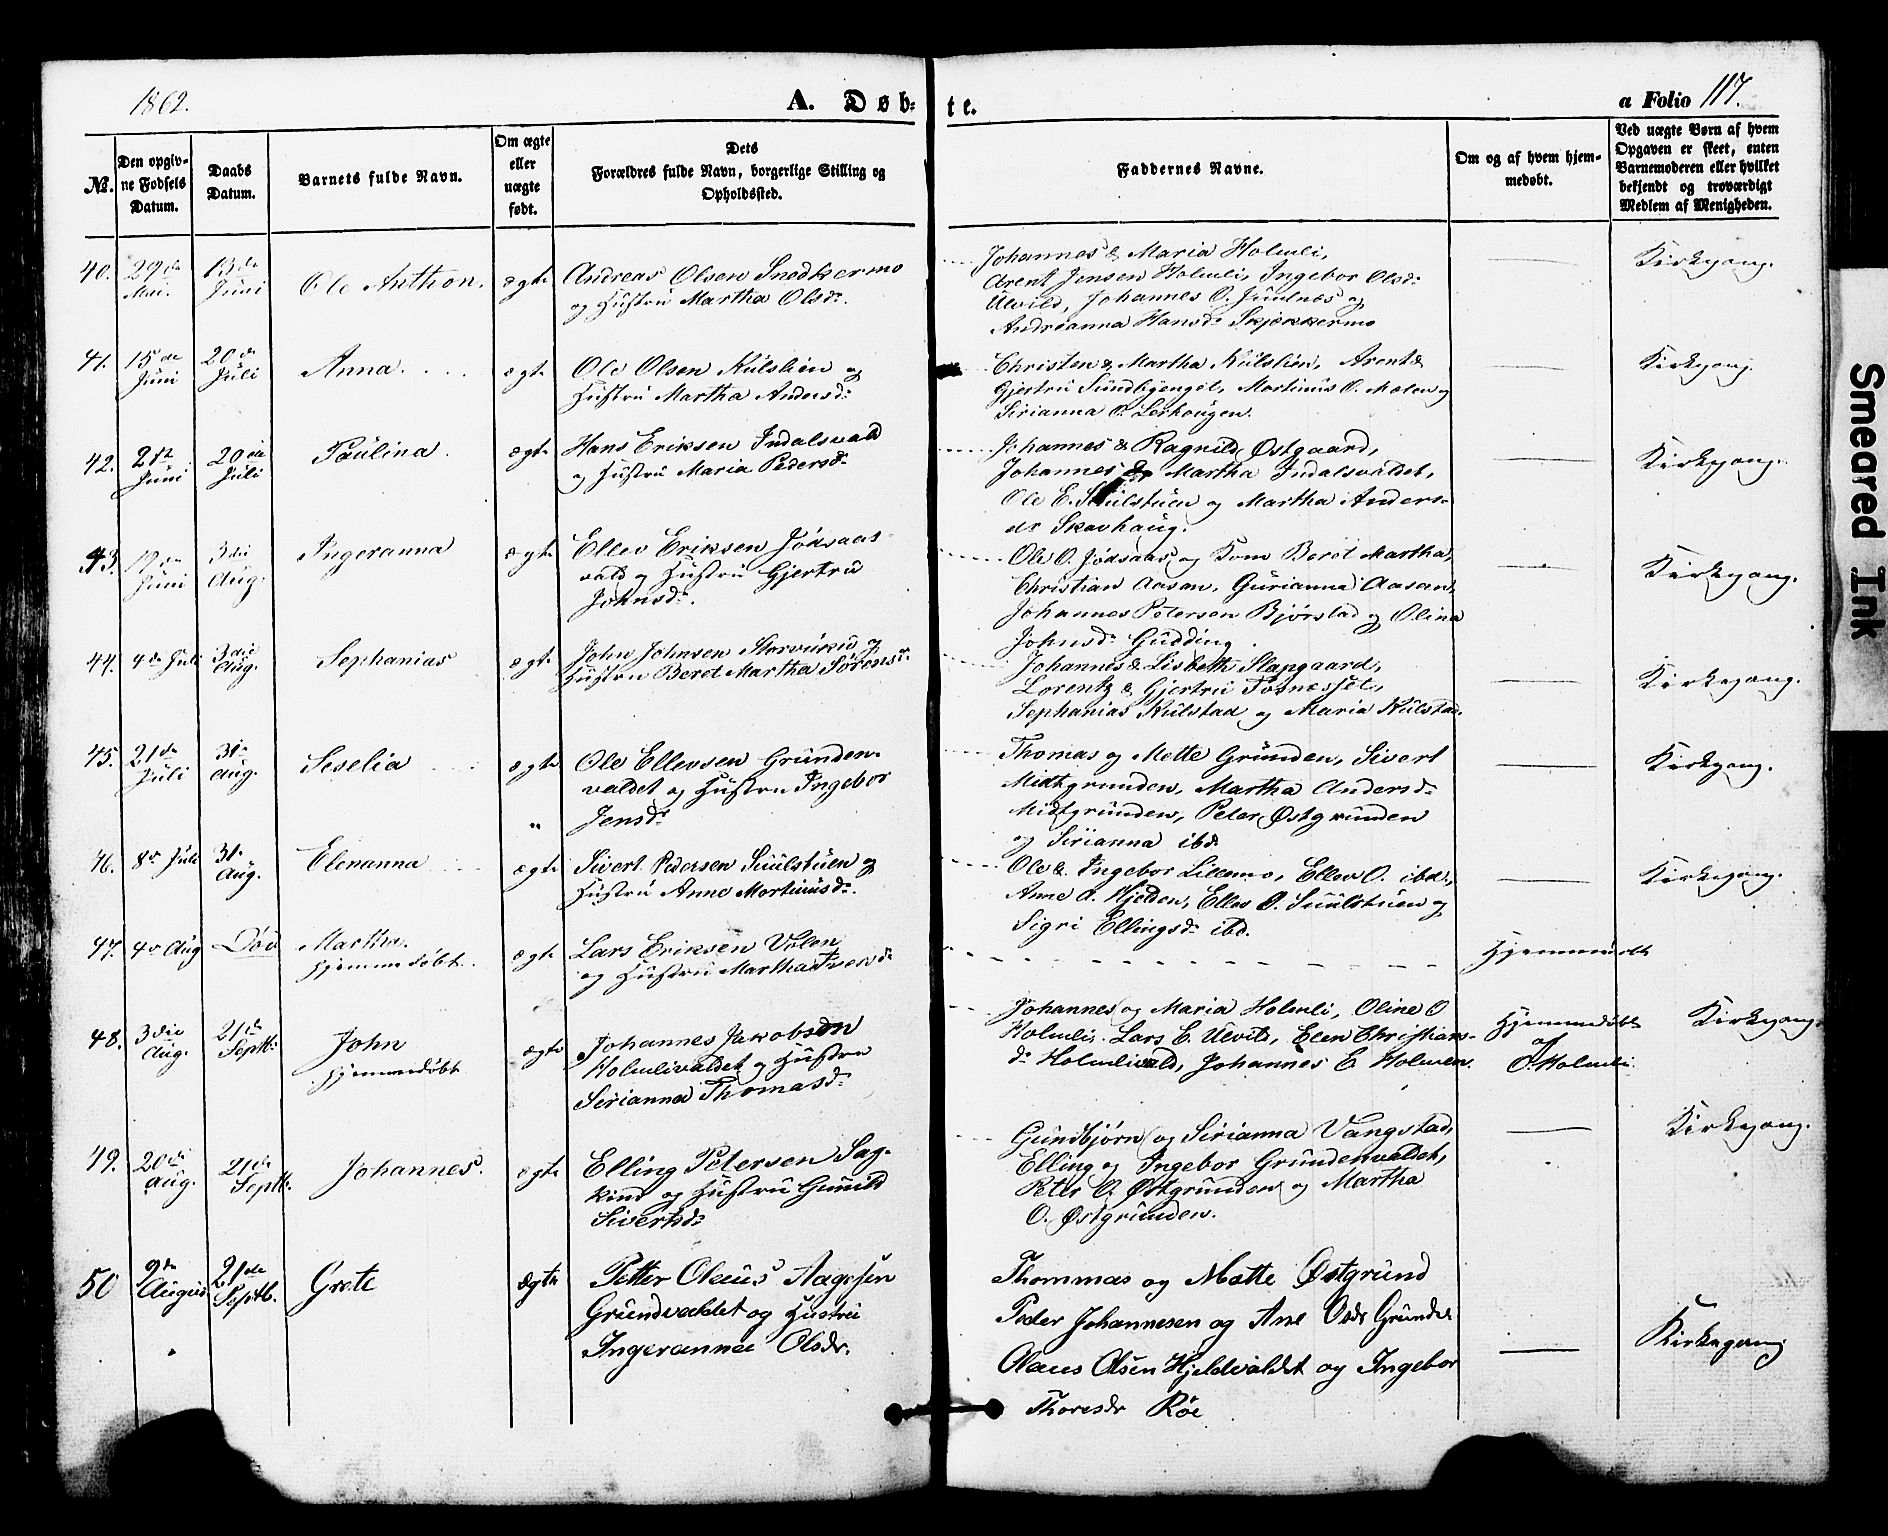 1862.
A. Døb-
te.
a Folio 117.
№.
Den opgiv-
ne Fødsels
Datum.
Daabs
Datum.
Barnets fulde Navn.
Om ægte
eller
uægte
født.
Dets
Forældres fulde Navn, borgerlige Stilling og
Opholdssted.
Faddernes Navne.
Om og af hvem hjem-
medøbt.
Ved uægte Børn af hvem
Opgaven er skeet, enten
Barnemoderen eller hvilket
bekjendt og troværdigt
Medlem af Menigheden.
40. 29de Mai. 13de Juni Ole Anthon. ægte
Andreas Olsen
og Hustru Martha Olsdr.
Johannes & Maria Holmli,
Arent Jensen Holmli, Ingebor Olsdr
Ulvild, Johannes O. Juulnes og
Andreanna Hansdr Skjækkermo
Kirkegang.
41. 15de Juni 20de Juli Anna. ægte
Ole Olsen Kulslien og
Hustru Martha Andersdr
Christen & Martha Kulslien, Arent &
Gjertru Sundbygenget, Mortinus O. Molen og
Sirianna O. Lerhougen.
Kirkegang.
42. 21de Juni 20de Juli Paulina. ægte
Hans Eriksen Indalsvald
og Hustru Maria Pedersdr
Johannes & Ragnild Østgaard,
Johannes & Martha Indalsvaldet,
Ole E. Suulstuen og Martha Anders-
dr Skavhaug.
Kirkegang.
43. Juni 3die Aug. Ingeranna ægte
Ellev Eriksen Jødsaas-
vald og Hustru Gjertru
Johnsdr.
Ole O. Jødsaas og Kone Beret Martha,
Christian Aasan, Gurianna Aasan,
Johannes Petersen Bjørstad og Olina
Johnsdr Gudding.
Kirkegang.
44. 4de Juli 3die Aug. Sephanias ægte
John Johnsen Storvukuo og
Hustru Beret Martha Sørensdr
Johannes & Lisbeth Slapgaard,
Lorentz & Gjertru Tosnesset,
Sephanias Kulstad og Maria Kulstad.
Kirkegang.
45. 21de Juli 31te Aug. Siselia ægte
Ole Ellevsen Grunden-
valdet og Hustru Ingebor
Jensdr
Thomas og Mette Grunden, Sivert
Midtgrunden, Martha Andersdr
Midtgrunden, Peter Østgrunden
og Sirianna ibd.
Kirkegang.
46. 8de Juli 31te Aug. Elenanna ægte
Sivert Pedersen Suulstuen og
Hustru Anne Mortinusdr.
Ole & Ingebor Lillemo, Ellev O. ibd.,
Anne A. Hjelden, Ellev O. Suulstuen og
Sigri Ellingsdr ibd.
Kirkegang.
47. 4de Aug Død Martha. Hjemmedøbt. ægte
Lars Eriksen Volen
og Hustru Martha
Hjemmedøbt
48. 3die Aug. 21de Septbr. John Hjemmedøbt ægte
Johannes Jakobsen
Holmlivaldet og Hustru
Sirianna Thomasdr
Johannes og Maria Holmli, Oline O
Holmli. Lars E. Ulvild, Elen Christians-
dr Holmlivald, Johannes E. Holmen.
Hjemmedøbt
af
O. Holmli.
Kirkegang
49. 20de Aug. 21de Septbr. Johannes. ægte
Elling Petersen Sag-
kind og Hustru Gunild
Sivertsdr
Gundbjørn og Sirianna Vangstad,
Elling og Ingebor Grundenvaldet,
Peter O. Østgrunden og Martha
O. Østgrunden.
Kirkegang.
50 9de August 21de Septb. Grete ægte
Petter Olaus Aagesen
Grundvaldet og Hustru
Ingeranna Olsdr.
Thommas og Mette Østgrund
Peder Johannesen og Ane Olsdr Grunde
Olaus Olsen Hjeldvaldet og Ingebor
Thoresdr Røe
Kirkegang
Smeared Ink